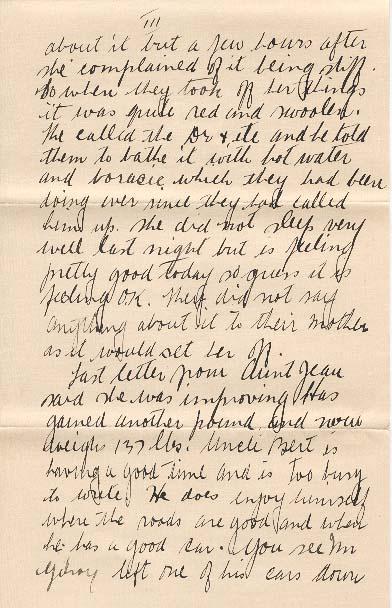 III
about it but a few hours after
she complained of it being stiff.
So when they took off her things
it was quite red and swoolen.
He called the Dr & ite and he told
them to bathe it with hot water
and boracic which they had been
doing ever since they had called
him up. She did not sleep very
well last night but is feeling
pretty good today so guess it is
feeling OK. They did not say
anything about it to their mother
as it would set her off.
Last letter from Aunt Jean
said she was improving Has
gained another pound and now
weighs 137 lbs. Uncle Bert is
having a good time and is too busy
to write. He does enjoy himself
where the roads are good and when
he has a good car. You see Mr
left one of his cars down